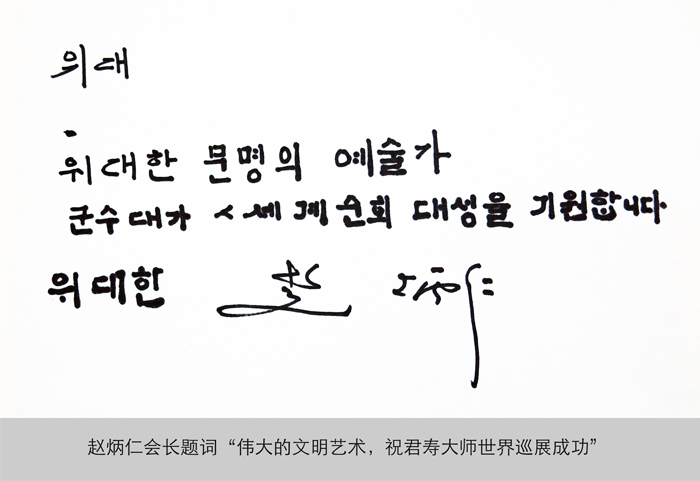 위대
위대한 문명의 예술가
군수대가 세계순회 대성을 기원합니다
위대한
赵炳仁会长题词“伟大的文明艺术，祝君寿大师世界巡展成功”